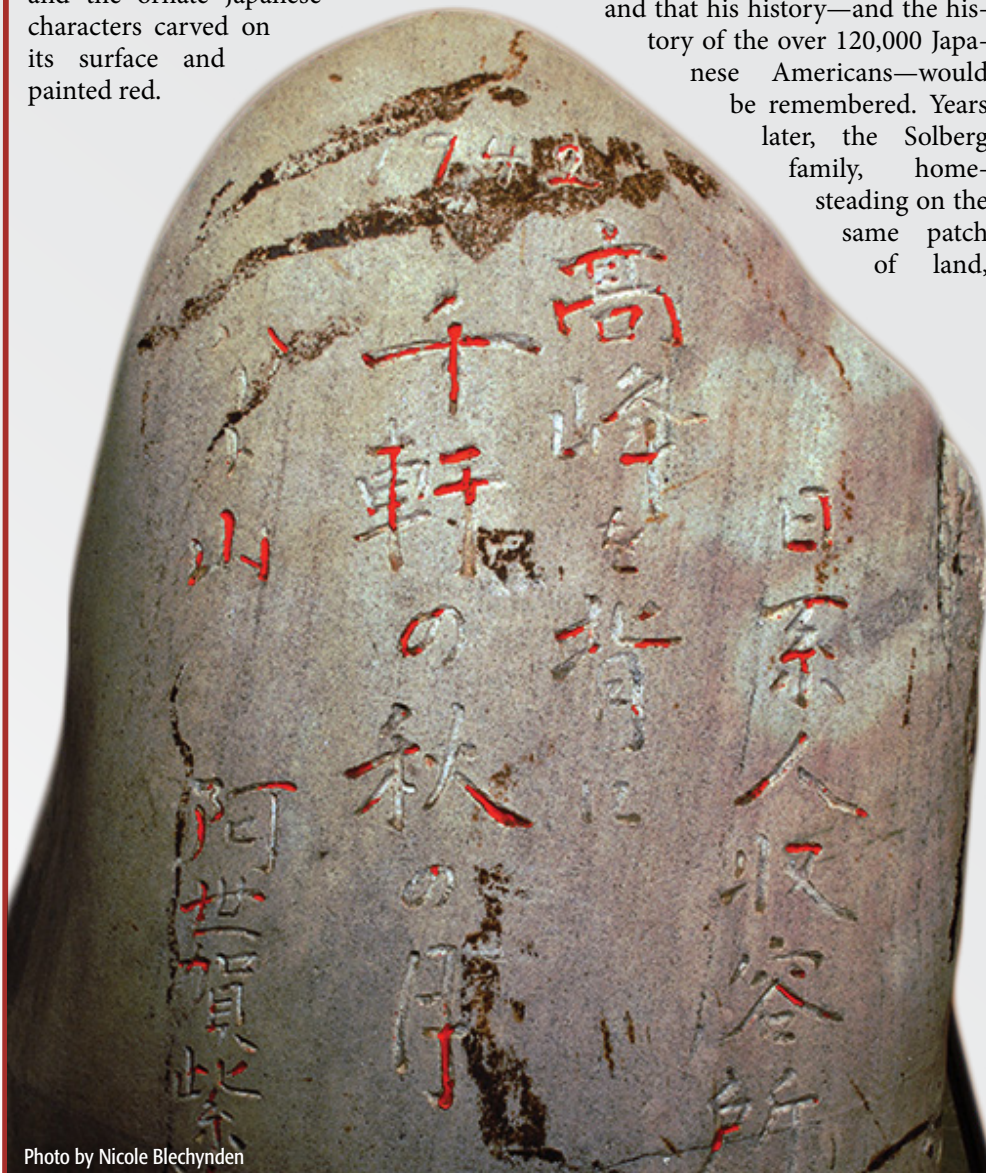 and the ornate Japanese
characters carved on
its surface and
painted red.
and that his history—and the his-
tory of the over 120,000 Japa-
nese Americans—would
be remembered. Years
later, the Solberg
family, home-
steading on the
same patch
of land,
1942
日系人収容所
高峰を背に
千軒の秋の月
山 阿世賀紫
Photo by Nicole Blechynden